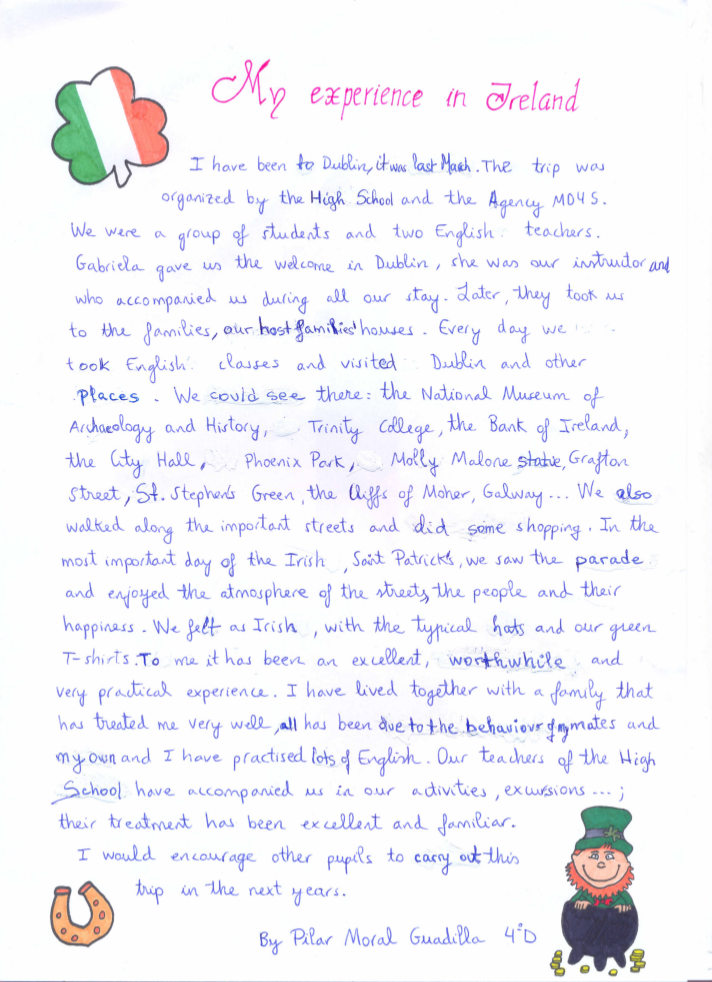 My experience in Ireland
I have been to Dublin, it was last March. The trip was
organized by the High School and the Agency MO4S.
We were a group of students and two English teachers.
Gabriela gave us the welcome in Dublin, she was our instructor and
who accompanied us during all our stay. Later, they took us
to the families, our host families' houses. Every day we
took English classes and visited Dublin and other
places. We could see there: the National Museum of
Archaeology and History, Trinity College, the Bank of Ireland,
the City Hall, Phoenix Park, Molly Malone statue, Grafton
Street, St. Stephen's Green, the Cliffs of Moher, Galway... We also
walked along the important streets and did some shopping. In the
most important day of the Irish, Saint Patrick's, we saw the parade
and enjoyed the atmosphere of the streets, the people and their
happiness. We felt as Irish, with the typical hats and our green
T-shirts. To me it has been an excellent, worthwhile and
very practical experience. I have lived together with a family that
has treated me very well, all has been due to the behaviour of my mates and
my own and I have practised lots of English. Our teachers of the High
School have accompanied us in our activities, excursions...;
their treatment has been excellent and familiar.
I would encourage other pupils to carry out this
trip in the next years.
By Pilar Moral Guadilla 4ºD